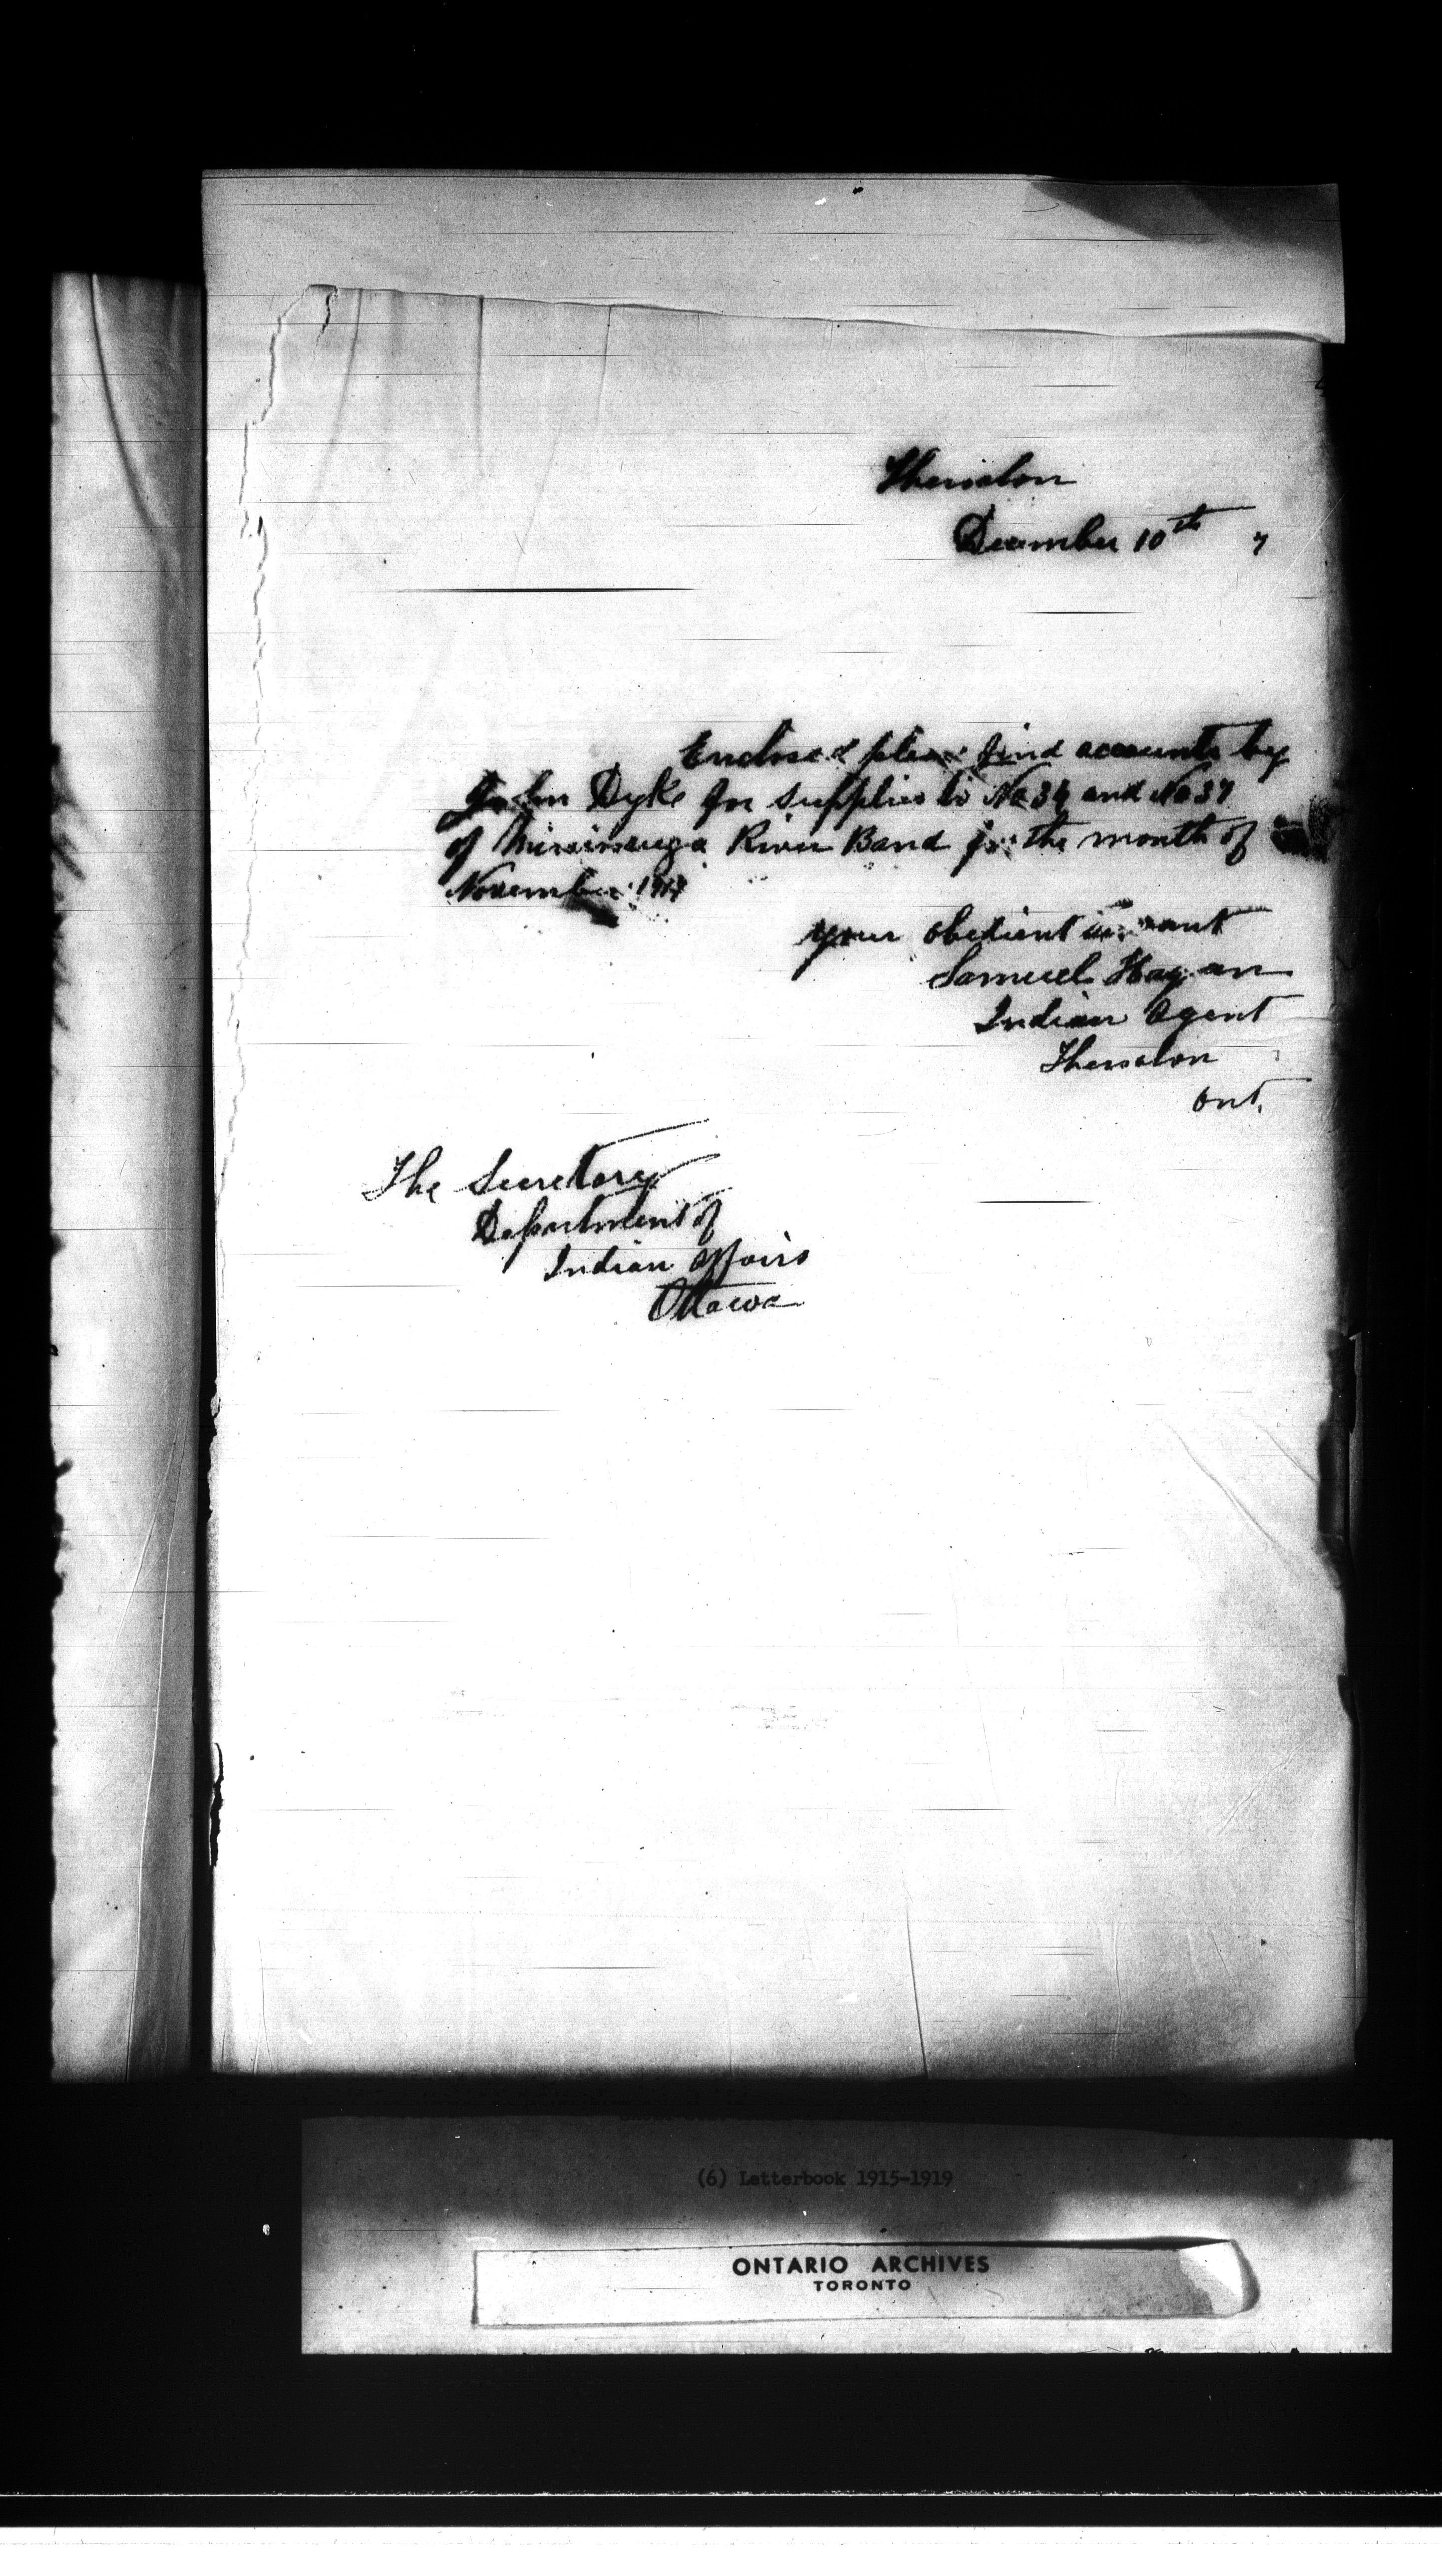 Thessalon
December 10th 7
Enclosed please find accounts by
John Dyke for supplies to No 34 and No 37
of Mississauga River Band for the month of
November 1917
your obedient servant
Samuel Hagan
Indian Agent
Thessalon
Ont.
The Secretary
Department of
Indian Affairs
Ottawa
(6) Letterbook 1915-1919
ONTARIO ARCHIVES
TORONTO